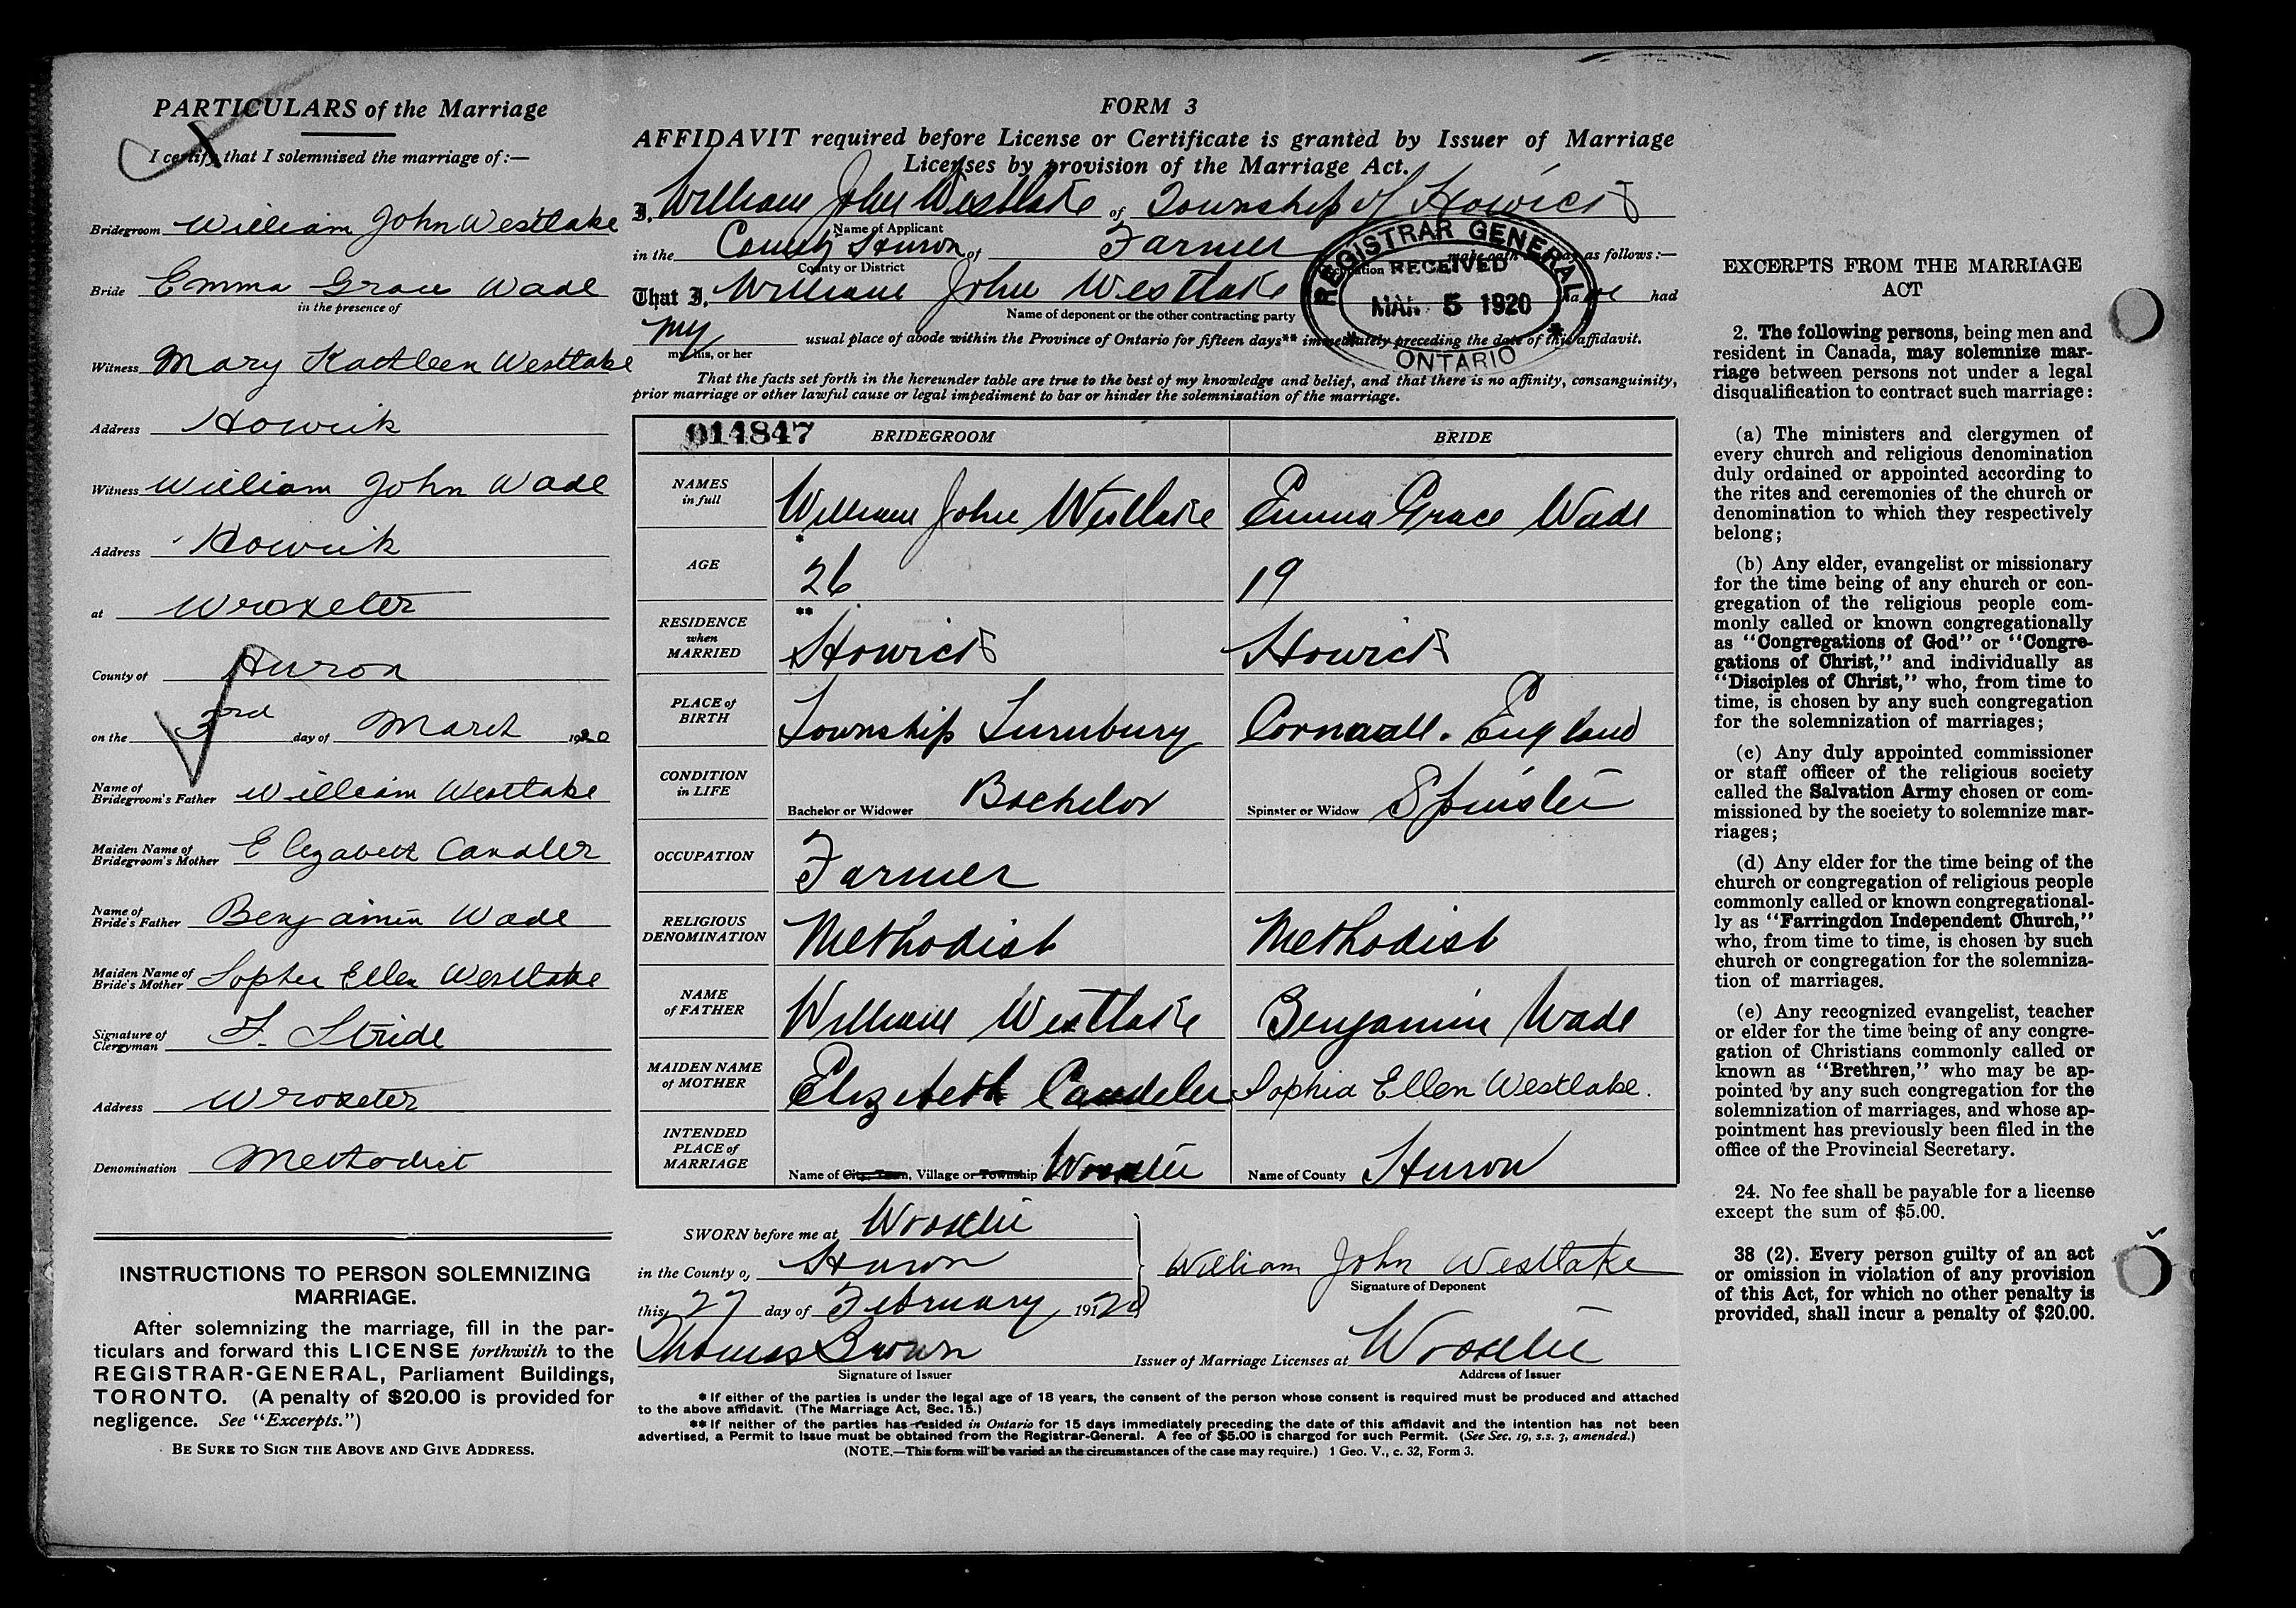 PARTICULARS of the Marriage
I certify that I solemnized the marriage of:—
Bridegroom William John Westlake
Bride Emma Grace Wade
in the presence of
Witness Mary Kathleen Westlake
Address Howick
Witness William John Wade
Address Howick
at Wroxeter
County of Huron
on the 3rd day of March 1920
Name of Bridegroom's Father William Westlake
Maiden Name of Bridegroom's Mother Elizabeth Candler
Name of Bride's Father Benjamin Wade
Maiden Name of Bride's Mother Sophia Ellen Westlake
Signature of Clergyman F. Stride
Address Wroxeter
Denomination Methodist
INSTRUCTIONS TO PERSON SOLEMNIZING
MARRIAGE.
After solemnizing the marriage, fill in the par-
ticulars and forward this LICENSE forthwith to the
REGISTRAR-GENERAL, Parliament Buildings,
TORONTO. (A penalty of $20.00 is provided for
negligence. See "Excerpts.")
BE SURE TO SIGN THE ABOVE AND GIVE ADDRESS.
FORM 3
AFFIDAVIT required before License or Certificate is granted by Issuer of Marriage
Licenses by provision of the Marriage Act.
I, William John Westlake of Township of Howick
Name of Applicant
in the County Huron of Farmer make oath and say as follows:—
County or District Occupation
That I, William John Westlake have had
Name of deponent or the other contracting party
my usual place of abode within the Province of Ontario for fifteen days** immediately preceding the date of this affidavit.
my, his, or her
REGISTRAR GENERAL
RECEIVED
MAR 5 1920
ONTARIO
That the facts set forth in the hereunder table are true to the best of my knowledge and belief, and that there is no affinity, consanguinity,
prior marriage or other lawful cause or legal impediment to bar or hinder the solemnization of the marriage.
014847 BRIDEGROOM BRIDE
NAMES in full William John Westlake Emma Grace Wade
AGE * 26 19
RESIDENCE when MARRIED ** Howick Howick
PLACE of BIRTH Township Turnbury Cornwall. England
CONDITION in LIFE Bachelor or Widower Bachelor Spinster or Widow Spinster
OCCUPATION Farmer
RELIGIOUS DENOMINATION Methodist Methodist
NAME of FATHER William Westlake Benjamin Wade
MAIDEN NAME of MOTHER Elizabeth Candeler Sophia Ellen Westlake.
INTENDED PLACE of MARRIAGE Name of City, Town, Village or Township Wroxeter Name of County Huron
SWORN before me at Wroxeter
in the County of Huron
this 27 day of February 1920
William John Westlake
Signature of Deponent
Thomas Brown Issuer of Marriage Licenses at Wroxeter
Signature of Issuer Address of Issuer
* If either of the parties is under the legal age of 18 years, the consent of the person whose consent is required must be produced and attached
to the above affidavit. (The Marriage Act, Sec. 15.)
** If neither of the parties has resided in Ontario for 15 days immediately preceding the date of this affidavit and the intention has not been
advertised, a Permit to Issue must be obtained from the Registrar-General. A fee of $5.00 is charged for such Permit. (See Sec. 19, s.s. 3, amended.)
(NOTE.—This form will be varied as the circumstances of the case may require.) 1 Geo. V., c. 32, Form 3.
EXCERPTS FROM THE MARRIAGE
ACT
2. The following persons, being men and
resident in Canada, may solemnize mar-
riage between persons not under a legal
disqualification to contract such marriage:
(a) The ministers and clergymen of
every church and religious denomination
duly ordained or appointed according to
the rites and ceremonies of the church or
denomination to which they respectively
belong;
(b) Any elder, evangelist or missionary
for the time being of any church or con-
gregation of the religious people com-
monly called or known congregationally
as "Congregations of God" or "Congre-
gations of Christ," and individually as
"Disciples of Christ," who, from time to
time, is chosen by any such congregation
for the solemnization of marriages;
(c) Any duly appointed commissioner
or staff officer of the religious society
called the Salvation Army chosen or com-
missioned by the society to solemnize mar-
riages;
(d) Any elder for the time being of the
church or congregation of religious people
commonly called or known congregational-
ly as "Farringdon Independent Church,"
who, from time to time, is chosen by such
church or congregation for the solemniza-
tion of marriages.
(e) Any recognized evangelist, teacher
or elder for the time being of any congre-
gation of Christians commonly called or
known as "Brethren," who may be ap-
pointed by any such congregation for the
solemnization of marriages, and whose ap-
pointment has previously been filed in the
office of the Provincial Secretary.
24. No fee shall be payable for a license
except the sum of $5.00.
38 (2). Every person guilty of an act
or omission in violation of any provision
of this Act, for which no other penalty is
provided, shall incur a penalty of $20.00.